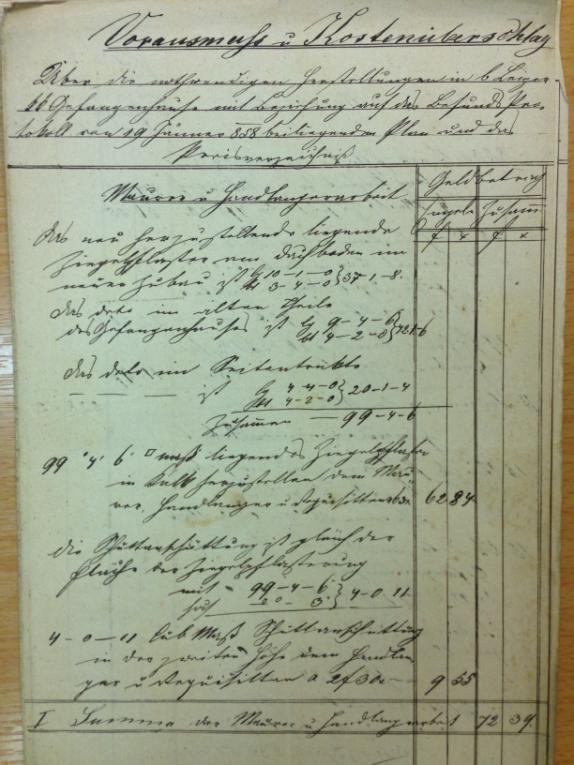 Vorausmass u Kostenüberschlag
Über die nothwendigen Herstellungen im k. Leizer
Gefangenhause mit Beziehung auf das Befunds Pro-
tokoll vom 19 Jänner 858 beiliegenden Plan und das
Preisverzeichniß
Geldbetrag
Maurer u Handlangerarbeit
Einzeln Zusamm
f x f x
Das neu herzustellende liegende
Ziegelpflaster am Dachboden im
neuen Zubau ist 10-1-0 } 37-1-8
3-4-0
das deto im alten Theile
des Gefangenhauses ist 9-4-6
4-2-0
das deto im Seitentrakte
ist 4-4-0 } 20-1-4
4-2-0
Zusammen — 99-4-6
99 4 6 □ Maß liegendes Ziegelpflaster
in Kalk herzustellen dem Mau-
rer, Handlanger u Requisitten 62 84
die Schuttanschüttung ist gleich der
Fläche der Ziegelpflasterung
mit - 99-4-6 } 4-0 11
3
4-0-11 Cub Maß Schuttanschüttung
in der zweiten Höhe dem Handlan-
ger u Requisitten a 2f 30x — 9 55
I Summa der Maurer u Handlangerarbeit 72 39